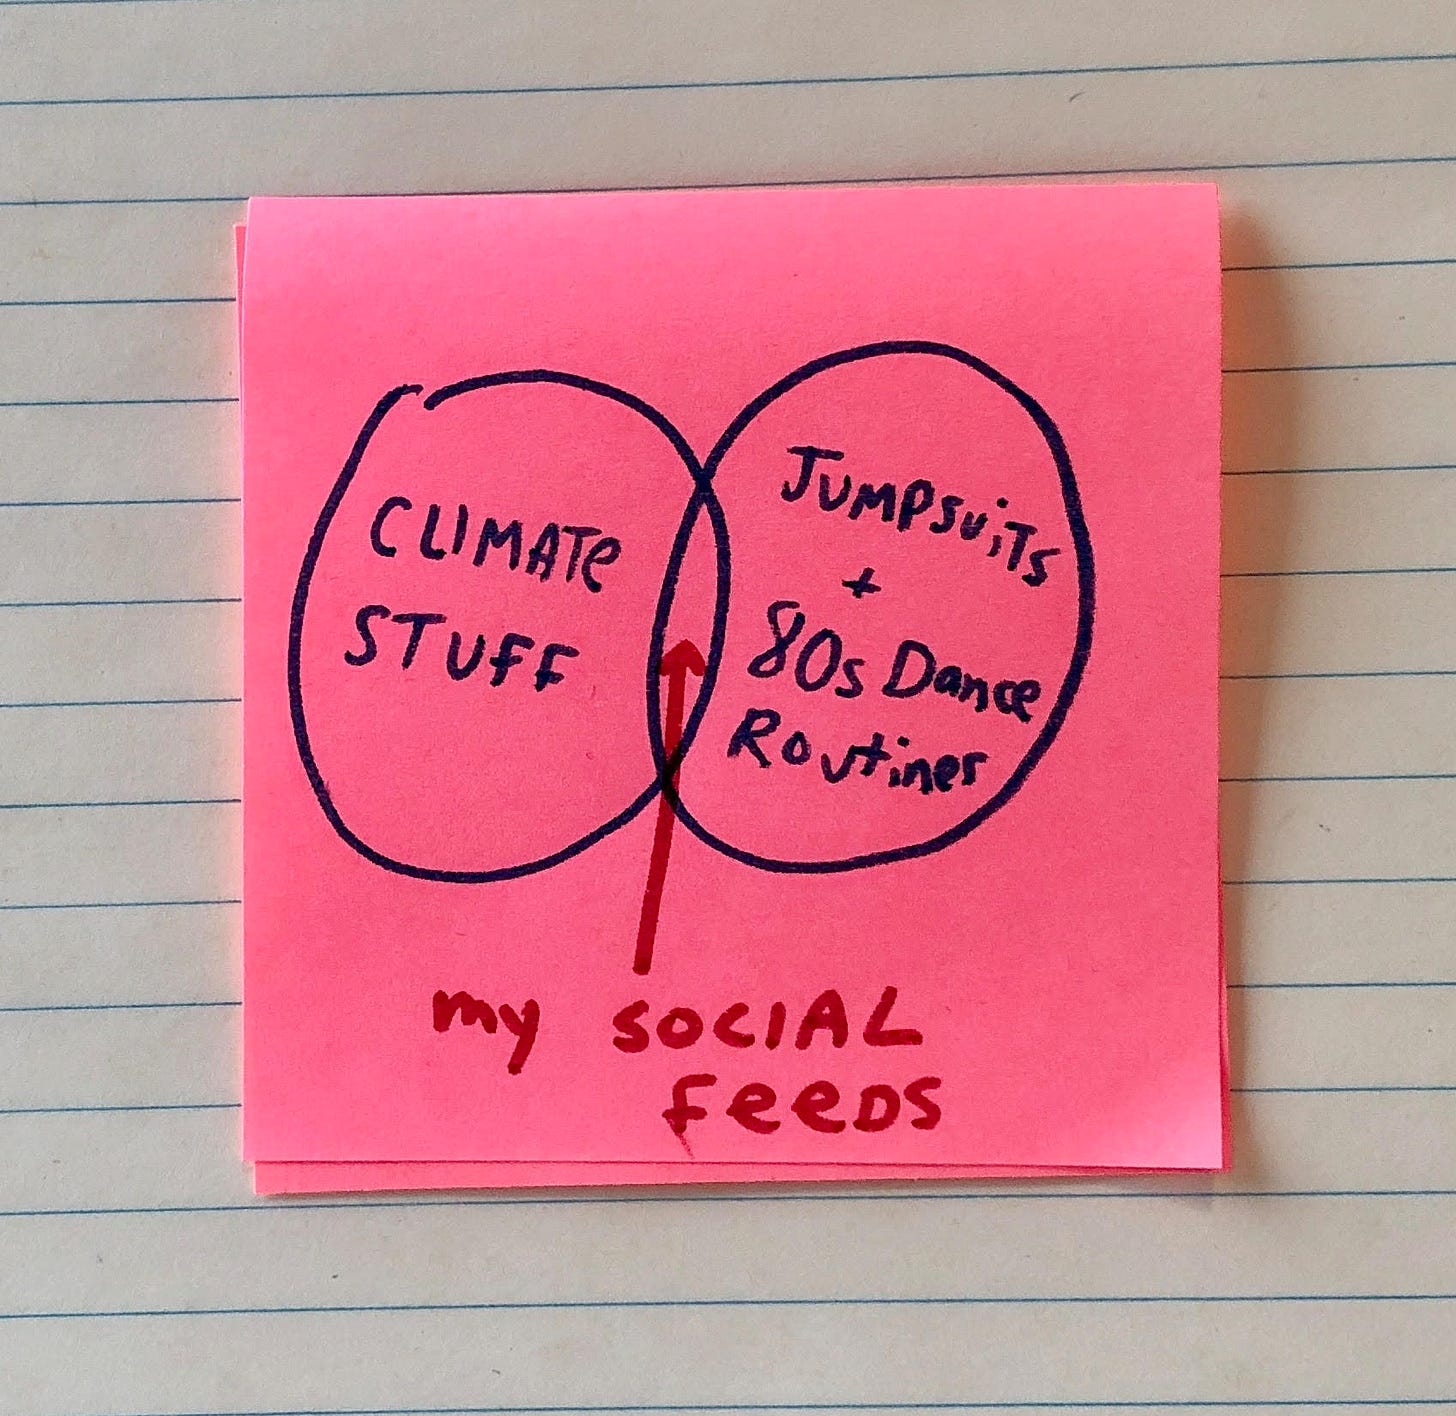 CLIMATE
STUFF
JUMPSUiTS
+
80s Dance
Routines
my SOCIAL
FeeDS